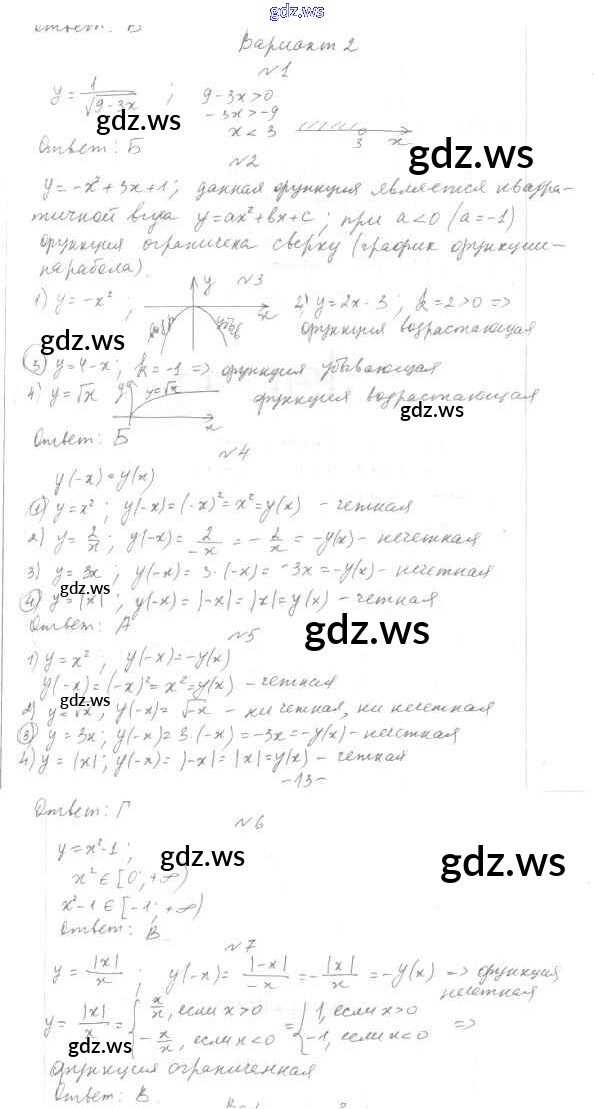 gdz.ws
Ответ: В
Вариант 2
№1
y = 1/√(9-3x) ; 9-3x>0
-3x>-9
gdz.ws
x<3
3 x
gdz.ws
Ответ: Б
№2
y=-x²+3x+1; данная функция является квадра-
тичной вида y=ax²+bx+c; при a<0 (a=-1)
функция ограничена сверху (график функции-
парабола).
№3
1) y=-x²; y x 2) y=2x-3; k=2>0 =>
функция возрастающая
gdz.ws
3) y=4-x; k=-1 => функция убывающая
4) y=√x y y=√x x функция возрастающая
gdz.ws
Ответ: Б
№4
y(-x)=y(x)
1) y=x²; y(-x)=(-x)²=x²=y(x) - четная
2) y=2/x; y(-x)=2/-x=-2/x=-y(x) - нечетная
3) y=3x; y(-x)=3·(-x)=-3x=-y(x) - нечетная
gdz.ws
4) y=|x|; y(-x)=|-x|=|x|=y(x) - четная
Ответ: А
gdz.ws
№5
1) y=x²; y(-x)=-y(x)
y(-x)=(-x)²=x²=y(x) - четная
gdz.ws
2) y=√x; y(-x)=√-x - ни четная, ни нечетная
3) y=3x; y(-x)=3·(-x)=-3x=-y(x) - нечетная
4) y=|x|; y(-x)=|-x|=|x|=y(x) - четная
-13-
Ответ: Г
№6
y=x²-1;
gdz.ws
gdz.ws
x²∈[0;+∞)
x²-1∈[-1;+∞)
Ответ: В
№7
y=|x|/x; y(-x)=|-x|/-x=-|x|/x=-y(x) => функция
нечетная
y=|x|/x={x/x, если x>0 ={1, если x>0
-x/x, если x<0 -1, если x<0 =>
gdz.ws
gdz.ws
функция ограниченная
Ответ: В.